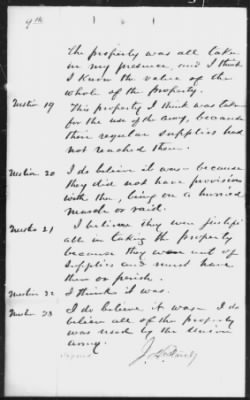 9th
The property was all taken
in my presence, and I think
I know the value of the
whole of the property.
Question 19 This property I think was taken
for the use of the army, because
their regular supplies had
not reached them.
Question 20 I do believe it was - because
they did not have provision
with them, being on a hurried
march or raid.
Question 21 I believe they were justifi
able in taking the property
because they were out of
supplies and must have
them or perish.
Question 22 I think it was.
Question 23 I do believe it was. I do
believe all of the property
was used by the Union
army.